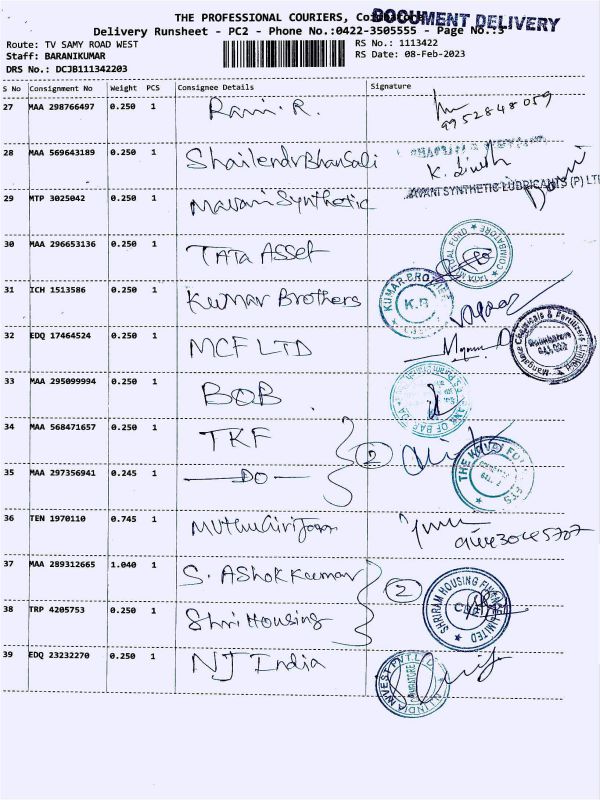 THE PROFESSIONAL COURIERS, Coimbatore
DOCUMENT DELIVERY
Delivery Runsheet - PC2 - Phone No.:0422-3505555 - Page No.:3
Route: TV SAMY ROAD WEST
RS No.: 1113422
Staff: BARANIKUMAR
RS Date: 08-Feb-2023
DRS No.: DCJB111342203
S No Consignment No Weight PCS Consignee Details Signature
27 MAA 298766497 0.250 1 Ram. R.
9952848059
28 MAA 569643189 0.250 1 Shailendr Bhansali
K. Dinesh
29 MTP 3025042 0.250 1 Mavani Synthetic
MAVANI SYNTHETIC LUBRICANTS (P) LTD
30 MAA 296653136 0.250 1 TATA Asset
MUTUAL FUND COIMBATORE
31 ICH 1513586 0.250 1 Kumar Brothers
KUMAR BROTHERS
K.B
32 EDQ 17464524 0.250 1 MCF LTD
Mangalore Chemicals & Fertilizers Limited
Coimbatore
641 002
33 MAA 295099994 0.250 1 BOB
BANK OF BARODA
34 MAA 568471657 0.250 1 TKF
2
THE KOVAI
35 MAA 297356941 0.245 1 — DO —
36 TEN 1970110 0.745 1
37 MAA 289312665 1.040 1 S. Ashok Kumar
2
SHRIRAM HOUSING FINANCE LIMITED
CBE
38 TRP 4205753 0.250 1 Shri Housing
39 EDQ 23232270 0.250 1 NJ India
NJ INDIA INVEST PVT. LTD.
COIMBATORE